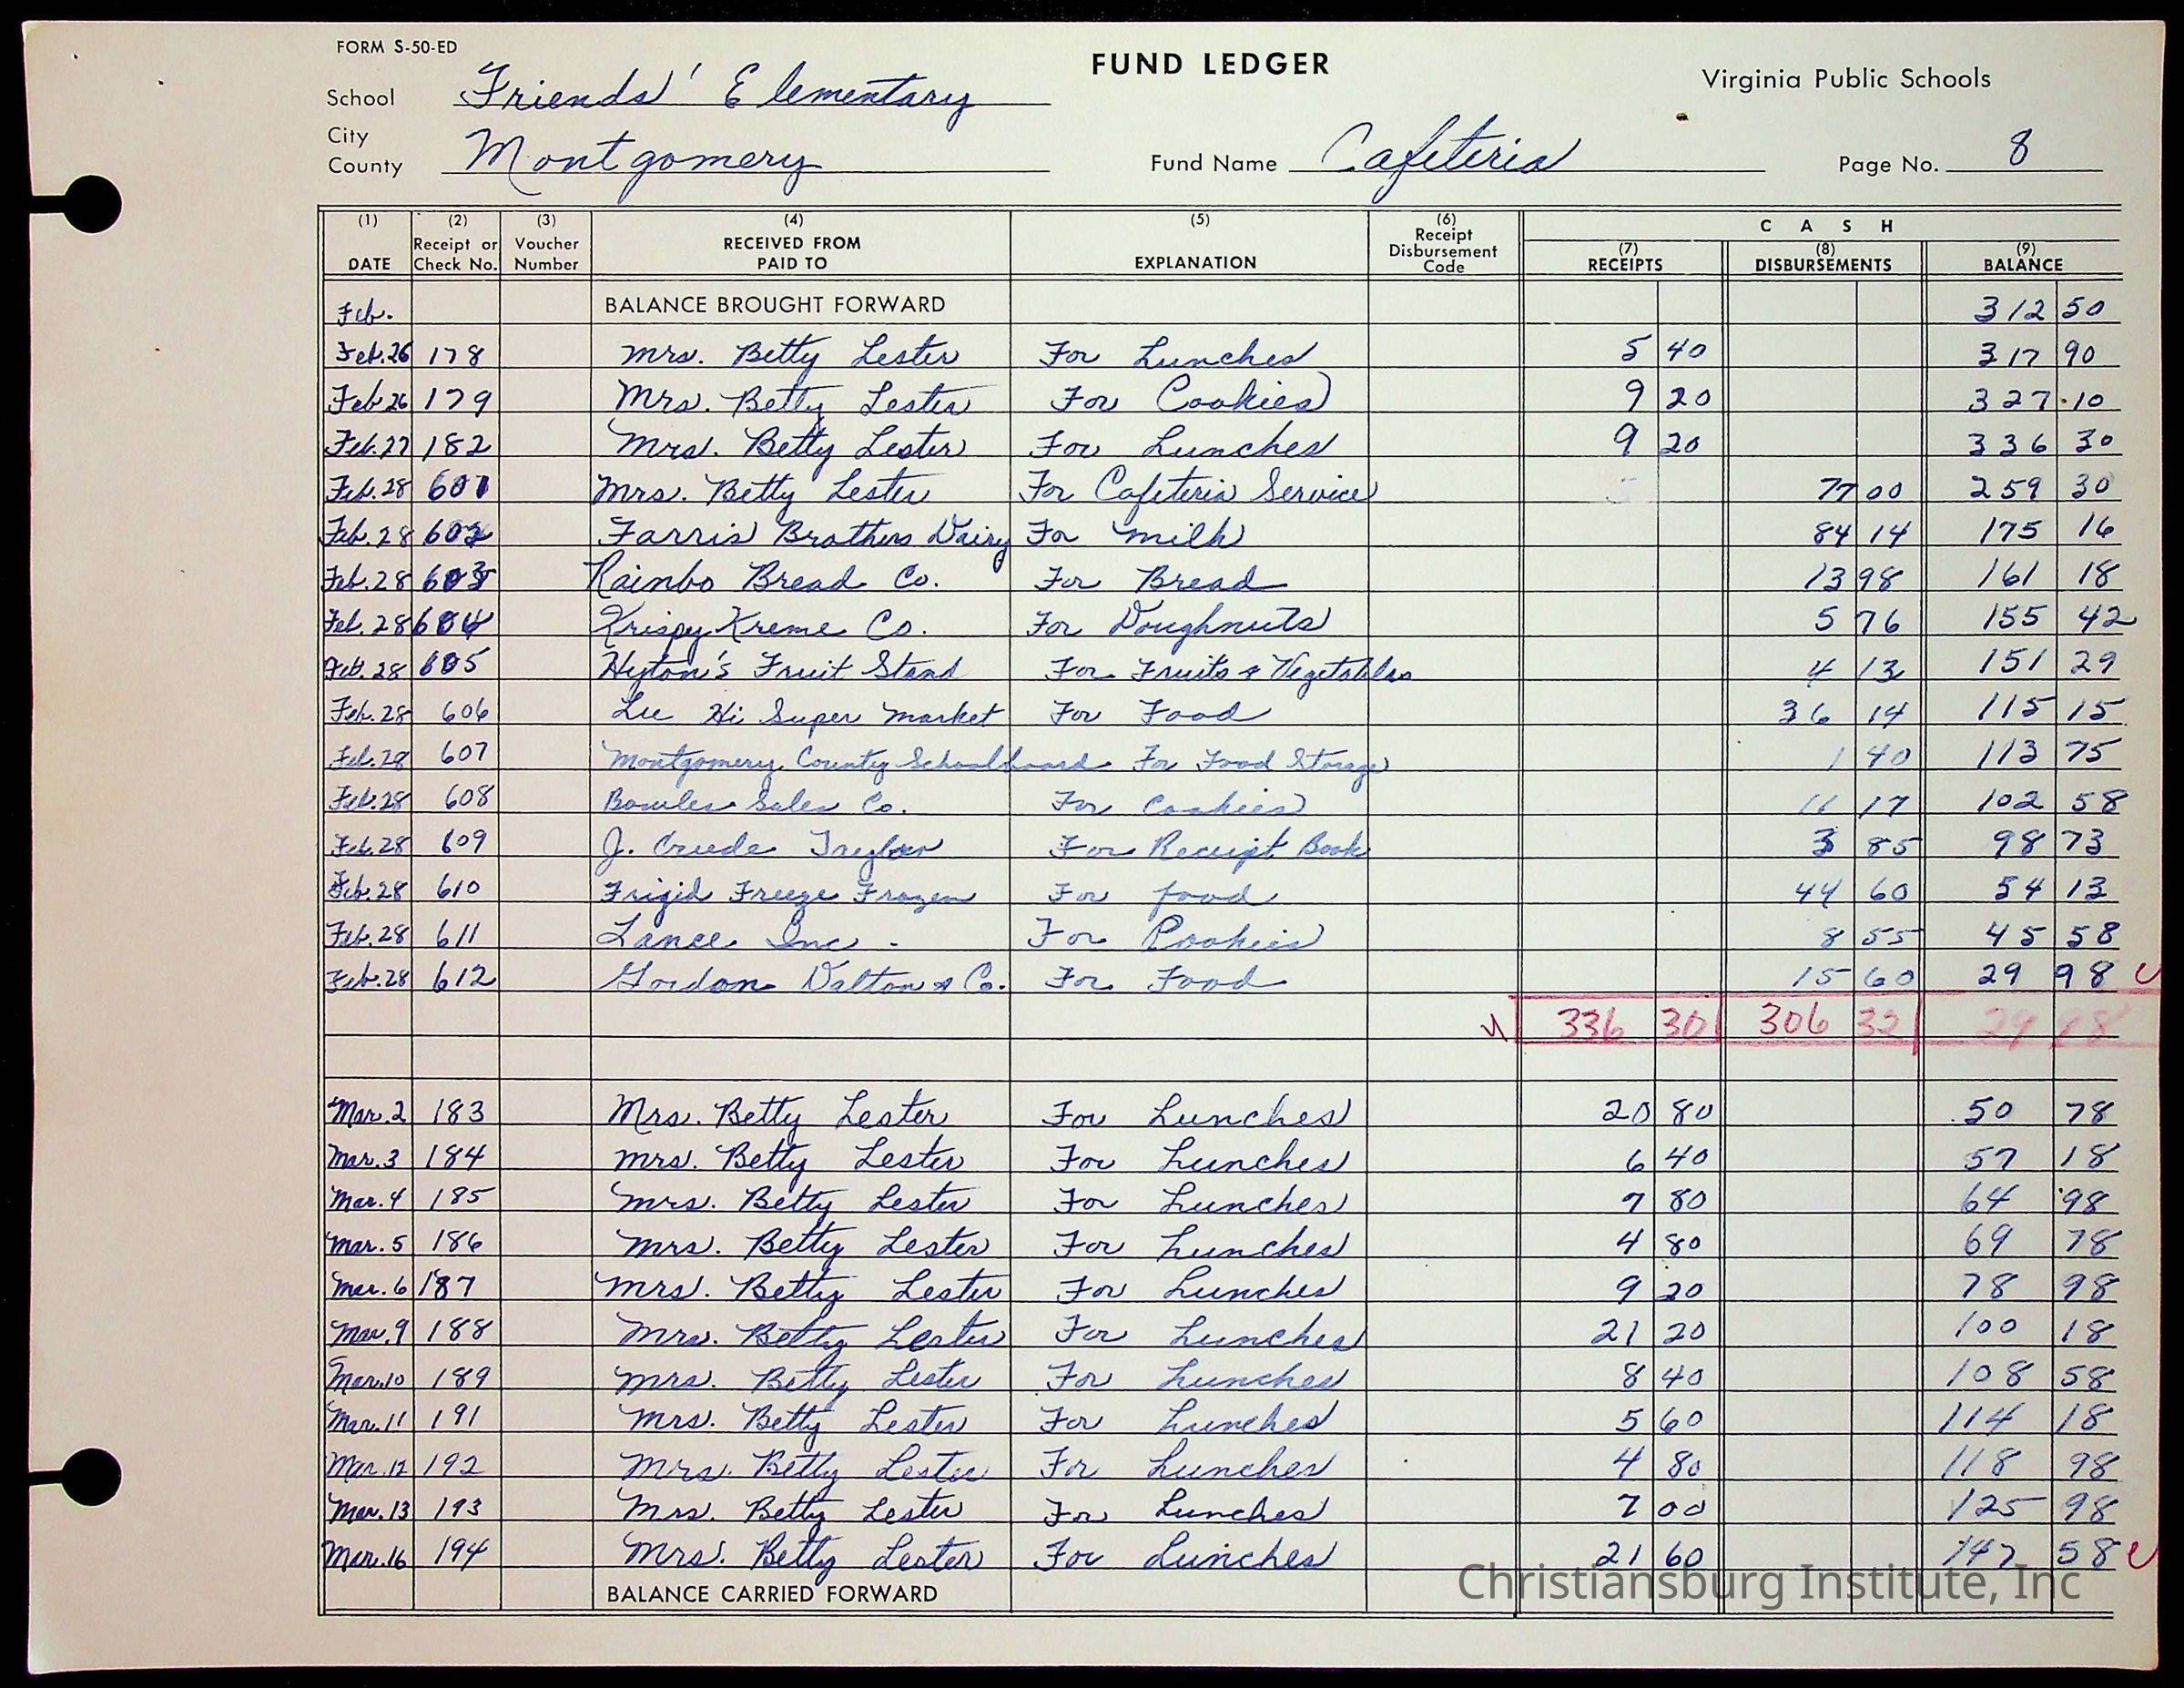 FORM S-50-ED
FUND LEDGER
Virginia Public Schools
School Friends' Elementary
City
County Montgomery Fund Name Cafeteria Page No. 8
(1) (2) (3) (4) (5) (6) C A S H
DATE Receipt or Check No. Voucher Number RECEIVED FROM PAID TO EXPLANATION Receipt Disbursement Code (7) RECEIPTS (8) DISBURSEMENTS (9) BALANCE
Feb. BALANCE BROUGHT FORWARD 312 50
Feb. 26 178 Mrs. Betty Lester For Lunches 5 40 317 90
Feb 26 179 Mrs. Betty Lester For Cookies 9 20 327 10
Feb. 27 182 Mrs. Betty Lester For Lunches 9 20 336 30
Feb. 28 601 Mrs. Betty Lester For Cafeteria Service 77 00 259 30
Feb. 28 602 Farris Brothers Dairy For Milk 84 14 175 16
Feb. 28 603 Rainbo Bread Co. For Bread 13 98 161 18
Feb. 28 604 Krispy Kreme Co. For Doughnuts 5 76 155 42
Feb. 28 605 Hyton's Fruit Stand For Fruits & Vegetables 4 13 151 29
Feb. 28 606 Lee Hi Super Market For Food 36 14 115 15
Feb. 28 607 Montgomery County Schoolboard For Food Storage 1 40 113 75
Feb. 28 608 Bowles Sales Co. For Cookies 11 17 102 58
Feb. 28 609 J. Crude Taylor For Receipt Book 3 85 98 73
Feb. 28 610 Frigid Freeze Frozen For food 44 60 54 13
Feb. 28 611 Lance Inc. For Cookies 8 55 45 58
Feb. 28 612 Gordon Dalton & Co. For Food 15 60 29 98
336 30 306 32 29 98
Mar. 2 183 Mrs. Betty Lester For Lunches 20 80 50 78
Mar. 3 184 Mrs. Betty Lester For Lunches 6 40 57 18
Mar. 4 185 Mrs. Betty Lester For Lunches 7 80 64 98
Mar. 5 186 Mrs. Betty Lester For Lunches 4 80 69 78
Mar. 6 187 Mrs. Betty Lester For Lunches 9 20 78 98
Mar. 9 188 Mrs. Betty Lester For Lunches 21 20 100 18
Mar. 10 189 Mrs. Betty Lester For Lunches 8 40 108 58
Mar. 11 191 Mrs. Betty Lester For Lunches 5 60 114 18
Mar. 12 192 Mrs. Betty Lester For Lunches 4 80 118 98
Mar. 13 193 Mrs. Betty Lester For Lunches 7 00 125 98
Mar. 16 194 Mrs. Betty Lester For Lunches 21 60 147 58
BALANCE CARRIED FORWARD
Christiansburg Institute, Inc